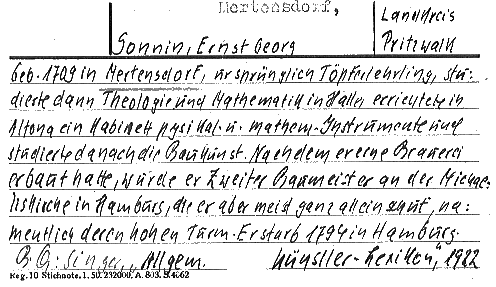 Mertensdorf,
Landkreis
Sonnin, Ernst Georg
Pritzwalk
Geb. 1709 in Mertensdorf, ursprünglich Töpferlehrling, stu-
dierte dann Theologie und Mathematik in Halle, errichtete in
Altona ein Kabinett pysikal. u. mathem. Instrumente und
studierte danach die Baukunst. Nachdem er eine Brauerei
erbaut hatte, wurde er zweiter Baumeister an der Michae-
liskirche in Hamburg, die er aber meist ganz allein schuf, na-
mentlich deren hohen Turm. Er starb 1794 in Hamburg.
Singer, „Allgem. Künstler-Lexikon", 1922
Reg. 10 Stichnote. 1. 50. 232000. A. 803. 3/4062